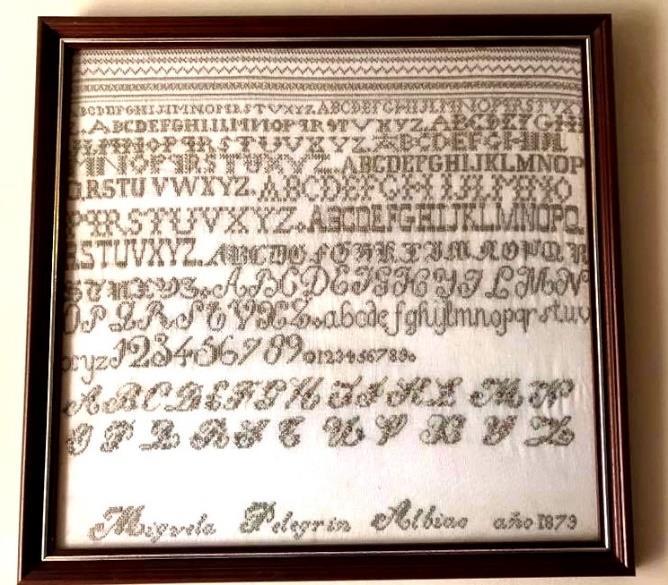 ABCDEFGHIJLMNOPQRSTUVXYZ. ABCDEFGHIJLMNOPQRSTVXYZ
.ABCDEFGHIJLMNOPQRSTUVXYZ. ABCDEFGHI
ABCDEFGHIJL
MNOPQRSTUVXYZ. ABCDEFGHIJKLMNOP
QRSTUVWXYZ. ABCDEFGHIJLMNO
PQRSTUVXYZ. ABCDEFGHIJKLMNOPQ
RSTUVXYZ. ABCDEFGHIJLMNOPQR
STUVXYZ. ABCDEFGHIJLMN
OPQRSTVXZ. abcdefghijlmnopqrstuv
xyz 1234567890 0123456789.
ABCDEFGHIJKLMN
OPQRSTUVXYZ
Miguela Pelegrin Albiac año 1879